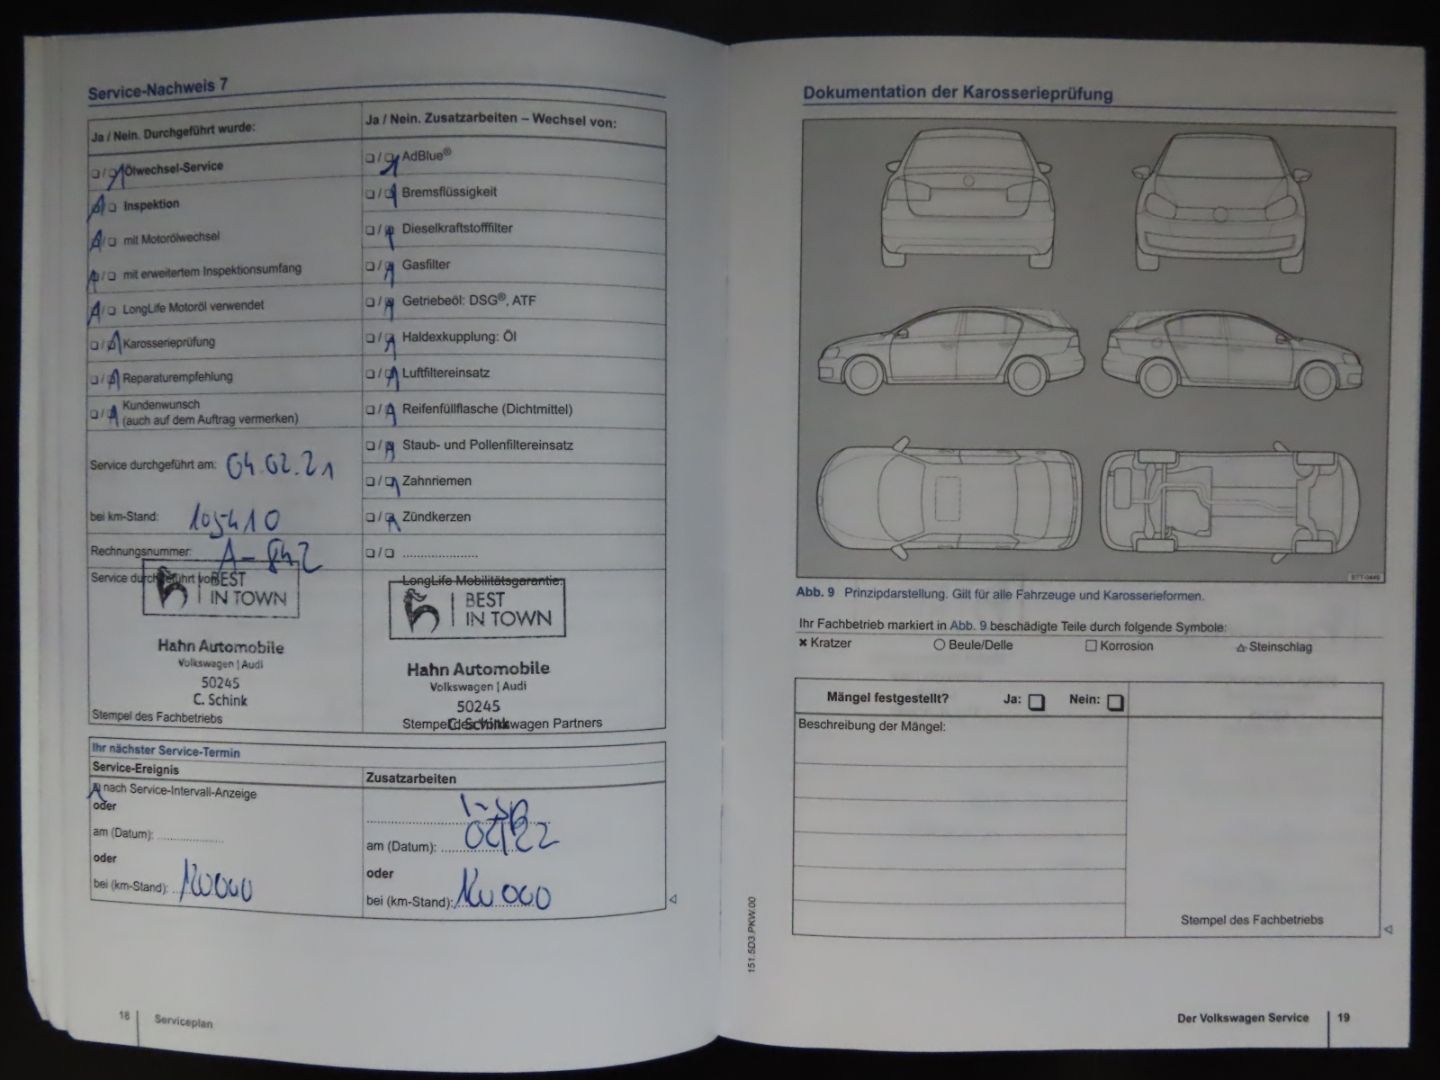 Service-Nachweis 7
Ja / Nein. Durchgeführt wurde:
Ölwechsel-Service
Inspektion
mit Motorölwechsel
mit erweitertem Inspektionsumfang
LongLife Motoröl verwendet
Karosserieprüfung
Reparaturempfehlung
Kundenwunsch
(auch auf dem Auftrag vermerken)
Service durchgeführt am: 04.02.21
bei km-Stand: 105410
Rechnungsnummer:
Service durchgeführt von:
BEST
IN TOWN
Hahn Automobile
Volkswagen | Audi
50245
C. Schink
Stempel des Fachbetriebs
Ja / Nein. Zusatzarbeiten – Wechsel von:
AdBlue®
Bremsflüssigkeit
Dieselkraftstofffilter
Gasfilter
Getriebeöl: DSG®, ATF
Haldexkupplung: Öl
Luftfiltereinsatz
Reifenfüllflasche (Dichtmittel)
Staub- und Pollenfiltereinsatz
Zahnriemen
Zündkerzen
LongLife Mobilitätsgarantie:
BEST
IN TOWN
Hahn Automobile
Volkswagen | Audi
50245
C. Schink
Stempel des Volkswagen Partners
Ihr nächster Service-Termin
Service-Ereignis
nach Service-Intervall-Anzeige
oder
am (Datum):
oder
bei (km-Stand): 120000
Zusatzarbeiten
am (Datum): 02/22
oder
bei (km-Stand): 120000
18 Serviceplan
Dokumentation der Karosserieprüfung
Abb. 9 Prinzipdarstellung. Gilt für alle Fahrzeuge und Karosserieformen.
Ihr Fachbetrieb markiert in Abb. 9 beschädigte Teile durch folgende Symbole:
Kratzer Beule/Delle Korrosion Steinschlag
Mängel festgestellt? Ja: Nein:
Beschreibung der Mängel:
Stempel des Fachbetriebs
151.5D3.PKW.00
Der Volkswagen Service 19